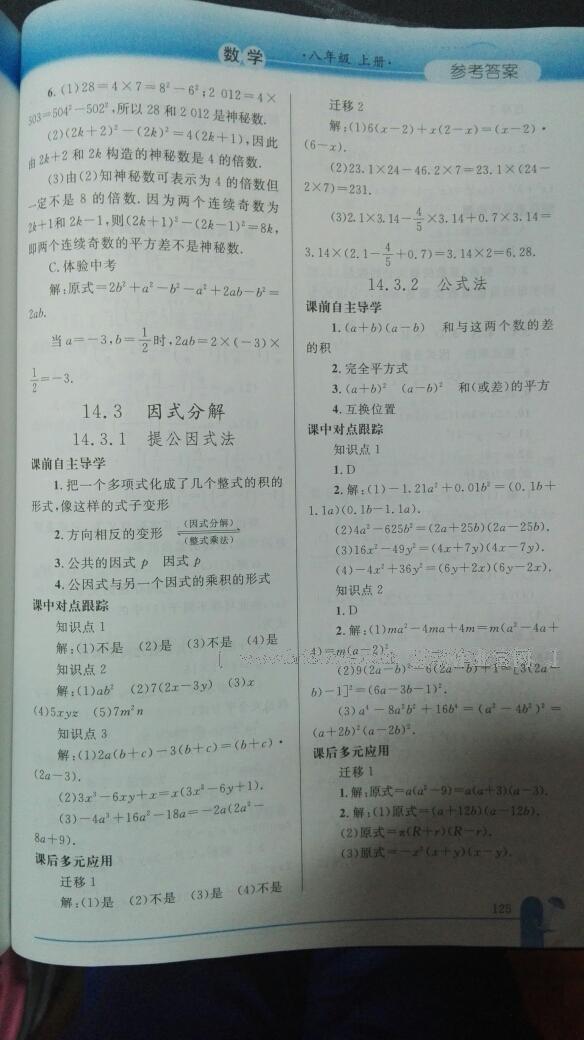 数学
·八年级 上册·
参考答案
6. (1)28=4×7=8²-6²;2 012=4×
503=504²-502²,所以 28 和 2 012 是神秘数.
(2)(2k+2)²-(2k)²=4(2k+1),因此
由 2k+2 和 2k 构造的神秘数是 4 的倍数.
(3)由(2)知神秘数可表示为 4 的倍数但
一定不是 8 的倍数. 因为两个连续奇数为
2k+1和 2k-1,则(2k+1)²-(2k-1)²=8k,
即两个连续奇数的平方差不是神秘数.
C. 体验中考
解:原式=2b²+a²-b²-a²+2ab-b²=
2ab.
当 a=-3,b=1/2时,2ab=2×(-3)×
1/2=-3.
14.3 因式分解
14.3.1 提公因式法
课前自主导学
1. 把一个多项式化成了几个整式的积的
形式,像这样的式子变形
2. 方向相反的变形 (因式分解) (整式乘法)
3. 公共的因式 p 因式 p
4. 公因式与另一个因式的乘积的形式
课中对点跟踪
知识点 1
解:(1)不是 (2)是 (3)不是 (4)是
知识点 2
解:(1)ab² (2)7(2x-3y) (3)x
(4)5xyz (5)7m²n
知识点 3
解:(1)2a(b+c)-3(b+c)=(b+c)·
(2a-3).
(2)3x³-6xy+x=x(3x²-6y+1).
(3)-4a³+16a²-18a=-2a(2a²-
8a+9).
课后多元应用
迁移 1
解:(1)是 (2)不是 (3)是 (4)不是
迁移 2
解:(1)6(x-2)+x(2-x)=(x-2)·
(6-x).
(2)23.1×24-46.2×7=23.1×(24-
2×7)=231.
(3)2.1×3.14-4/5×3.14+0.7×3.14=
3.14×(2.1-4/5+0.7)=3.14×2=6.28.
14.3.2 公式法
课前自主导学
1. (a+b)(a-b) 和与这两个数的差
的积
2. 完全平方式
3. (a+b)² (a-b)² 和(或差)的平方
4. 互换位置
课中对点跟踪
知识点 1
1. D
2. 解:(1)-1.21a²+0.01b²=(0.1b+
1.1a)(0.1b-1.1a).
(2)4a²-625b²=(2a+25b)(2a-25b).
(3)16x²-49y²=(4x+7y)(4x-7y).
(4)-4x²+36y²=(6y+2x)(6y-2x).
知识点 2
1. D
2. 解:(1)ma²-4ma+4m=m(a²-4a+
4)=m(a-2)².
(2)9(2a-b)²-6(2a-b)+1=[3(2a-
b)-1]²=(6a-3b-1)².
(3)a⁴-8a²b²+16b⁴=(a²-4b²)²=
(a+2b)²(a-2b)².
课后多元应用
迁移 1
1. 解:原式=a(a²-9)=a(a+3)(a-3).
2. 解:(1)原式=(a+12b)(a-12b).
(2)原式=π(R+r)(R-r).
(3)原式=-x²(x+y)(x-y).
125